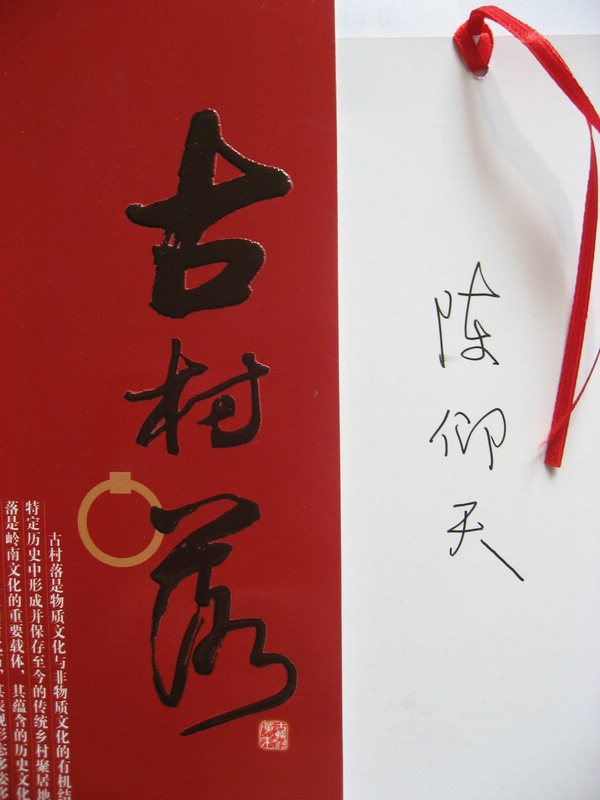 古村落
古村落是物质文化与非物质文化的有机结
特定历史中形成并保存至今的传统乡村聚居地
落是岭南文化的重要载体，其蕴含的历史文化
其表现形态多姿多
陈仰天